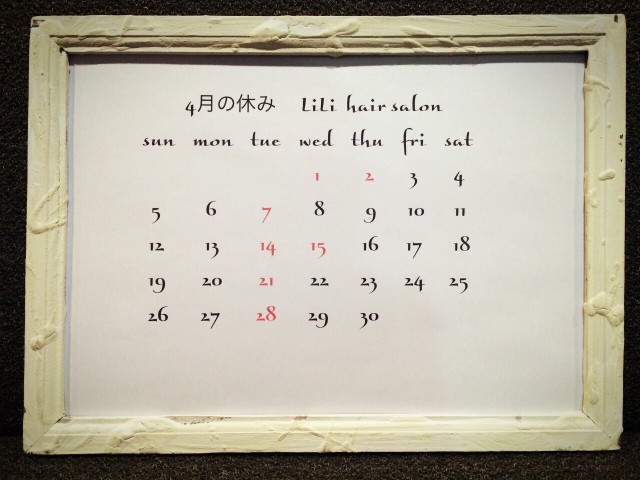 4月の休み LiLi hair salon
sun mon tue wed thu fri sat
1 2 3 4
5 6 7 8 9 10 11
12 13 14 15 16 17 18
19 20 21 22 23 24 25
26 27 28 29 30